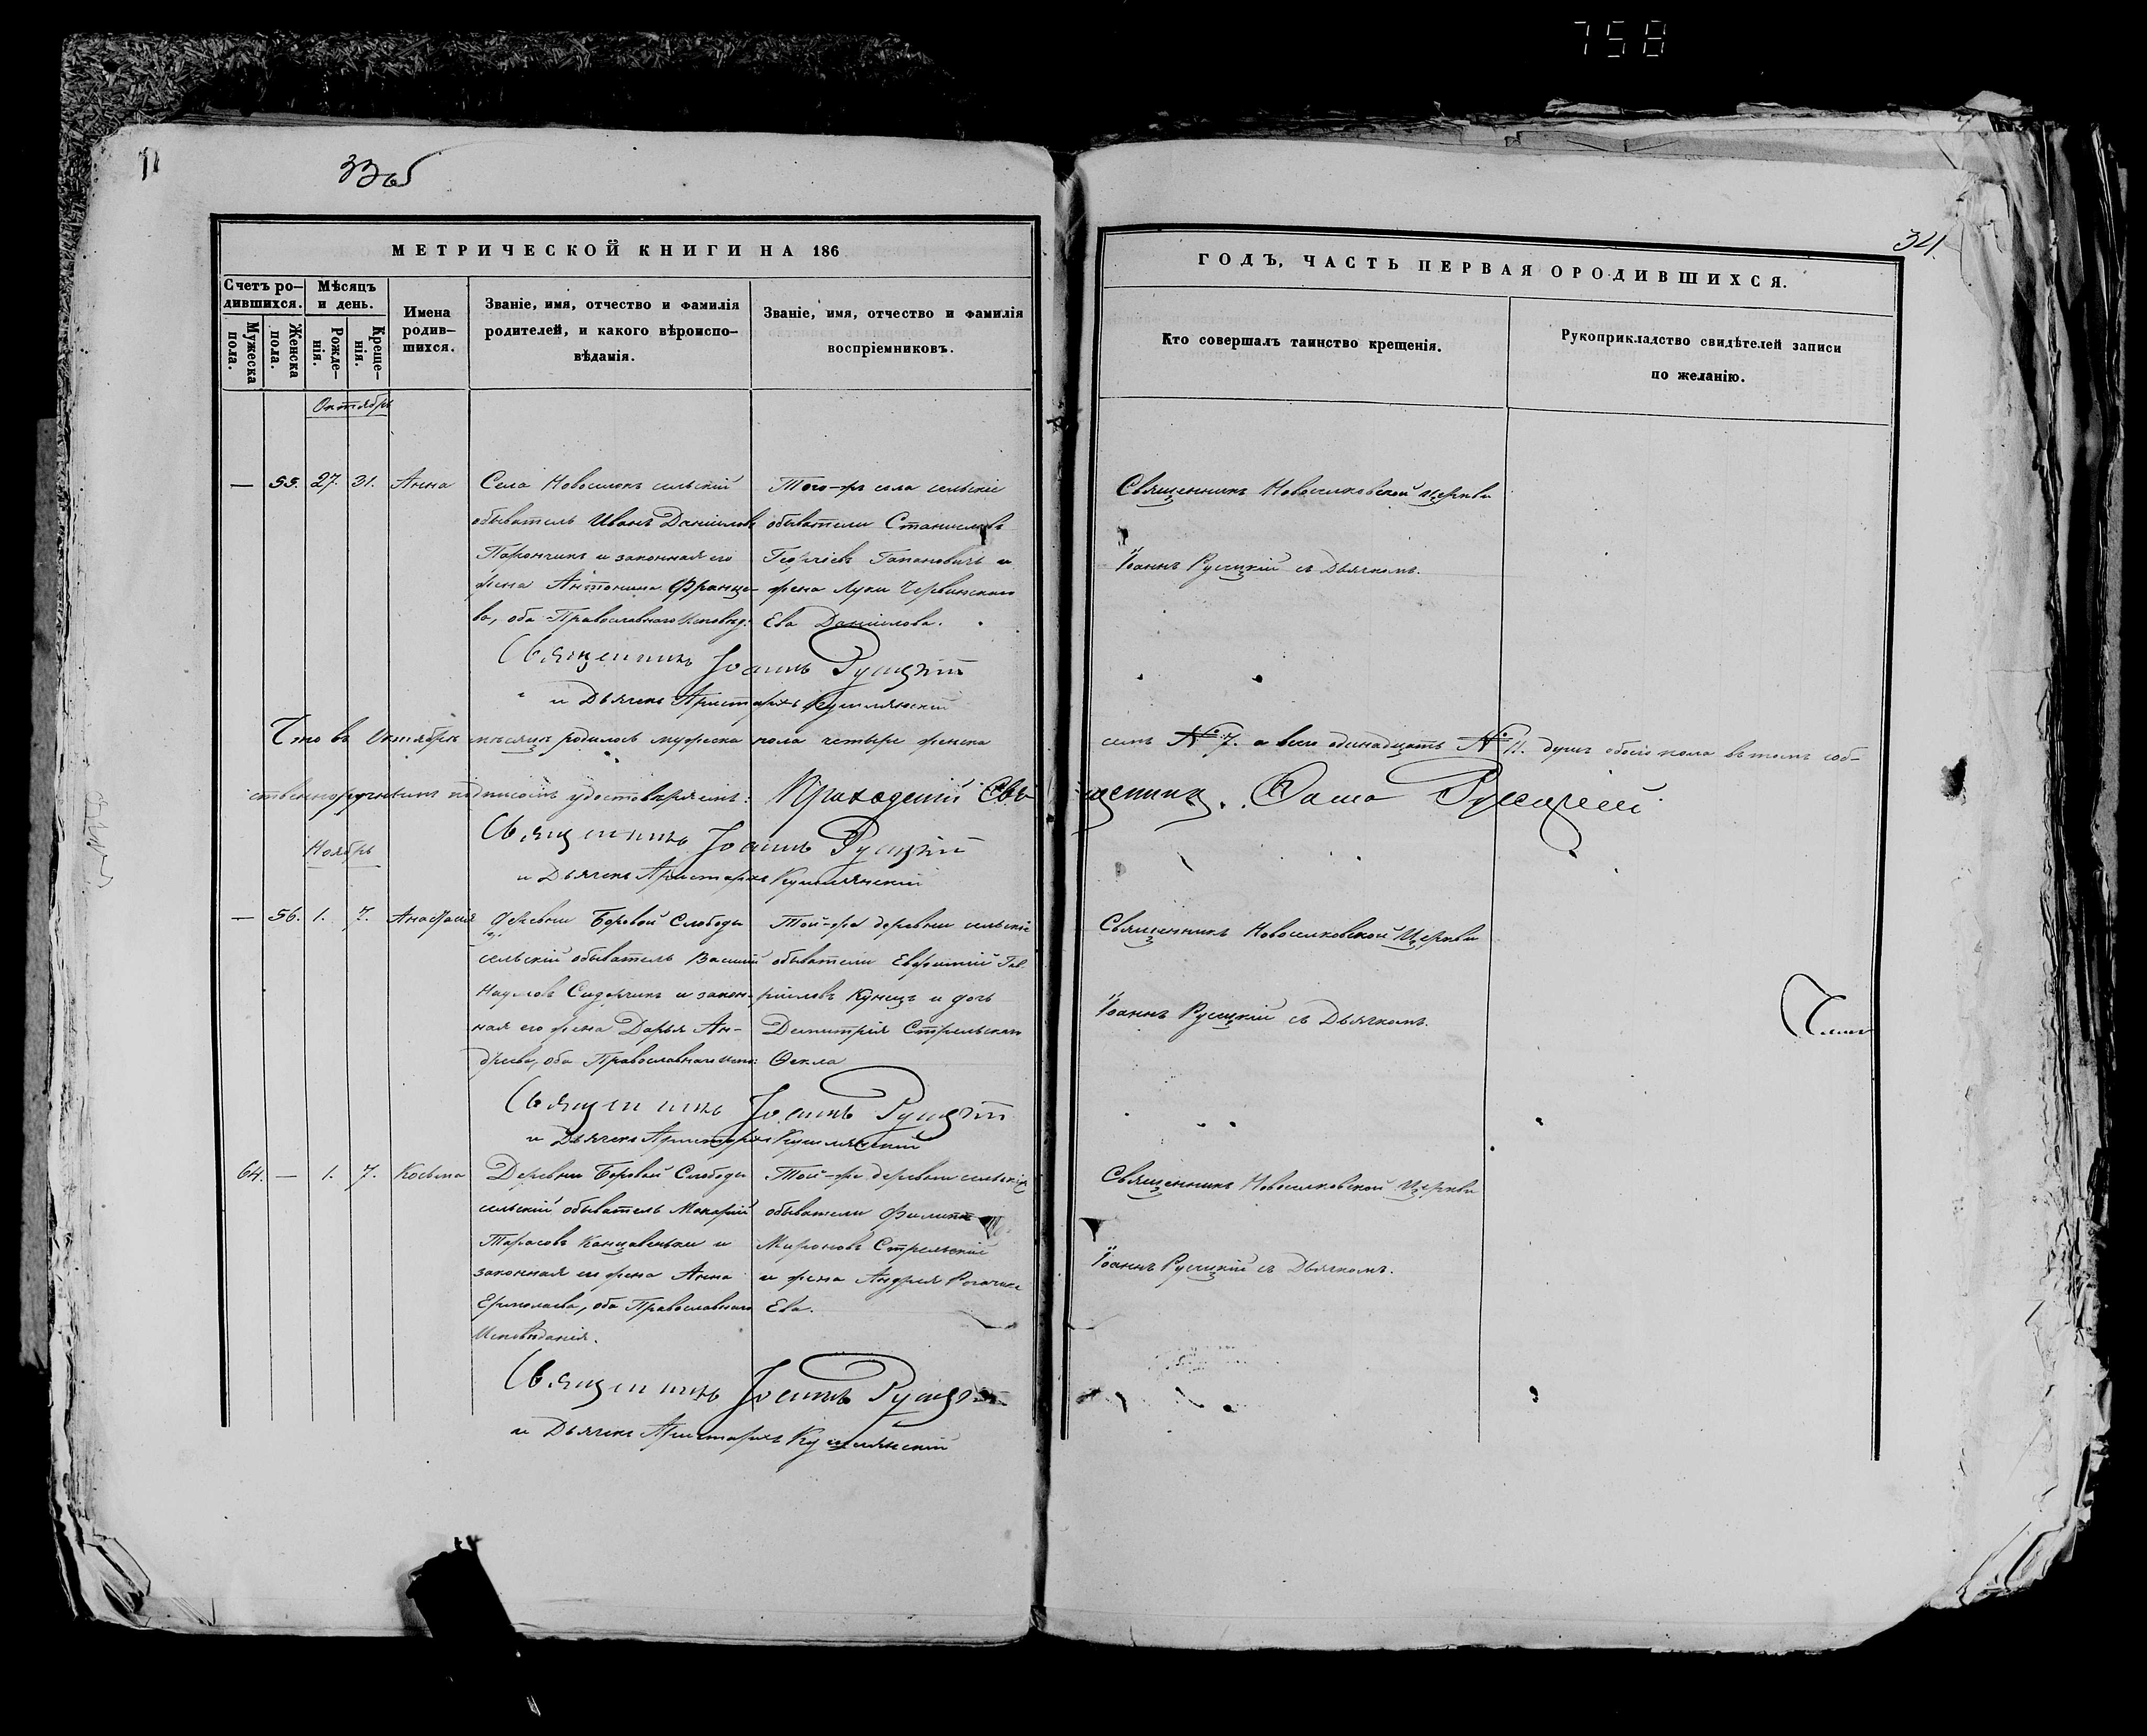 758
33об
34
МЕТРИЧЕСКОЙ КНИГИ НА 186
ГОДЪ, ЧАСТЬ ПЕРВАЯ О РОДИВШИХСЯ.
Счетъ ро-
дившихся.
Мужеска
пола.
Женска
пола.
Мѣсяцъ
и день.
Рожде-
нія.
Креще-
нія.
Имена
родив-
шихся.
Званіе, имя, отчество и фамилія
родителей, и какого вѣроиспо-
вѣданія.
Званіе, имя, отчество и фамилія
воспріемниковъ.
Кто совершалъ таинство крещенія.
Рукоприкладство свидѣтелей записи
по желанію.
Октябрь
— 55. 27. 31. Анна
Села Новоселокъ сельскій
обыватель Иванъ Даніиловъ
и законная его
жена Антонина Францо-
ва, оба Православнаго Исповѣд.
Того-же села сельскіе
обыватели Станиславъ
Георгіевъ Гапановичъ и
жена Луки Червинскаго
Ева Даніилова.
Священникъ Новоселковской Церкви
Іоаннъ Русецкій съ Дьячкомъ.
Священникъ Іоаннъ Русецкій
и Дьячекъ Аристархъ
Что въ Октябрѣ мѣсяцѣ родилось мужеска пола четыре женска
семь № 7. а всего одинадцать № 11. душъ обоего пола въ томъ соб-
ственноручнымъ подписомъ удостовѣряемъ: Приходскій Свя
щенникъ. Русецкій
Священникъ Іоаннъ Русецкій
и Дьячекъ Аристархъ
Ноябрь
— 56. 1. 7. Анастасія
Деревни Боровой Слободы
сельскій обыватель Василій
Наумовъ Сидорчикъ и закон-
ная его жена Дарья Ан-
дреева, оба Православнаго испо:
Той-же деревни сельскіе
обыватели Евфимій Гав-
ріиловъ Куницъ и дочь
Димитрія Стрельскаго
Ѳекла
Священникъ Новоселковской Церкви
Іоаннъ Русецкій съ Дьячкомъ.
Священникъ Іоаннъ Русецкій
и Дьячекъ Аристархъ
64. — 1. 7. Косьма
Деревни Боровой Слободы
сельскій обыватель Макарій
Тарасовъ и
законная его жена Анна
Ермолаева, оба Православнаго
Исповѣданія.
Той-же деревни сельскіе
обыватели Филиппъ
Мироновъ Стрельскій
и жена Андрея Рогачика
Ева.
Священникъ Новоселковской Церкви
Іоаннъ Русецкій съ Дьячкомъ.
Священникъ Іоаннъ Русецкій
и Дьячекъ Аристархъ